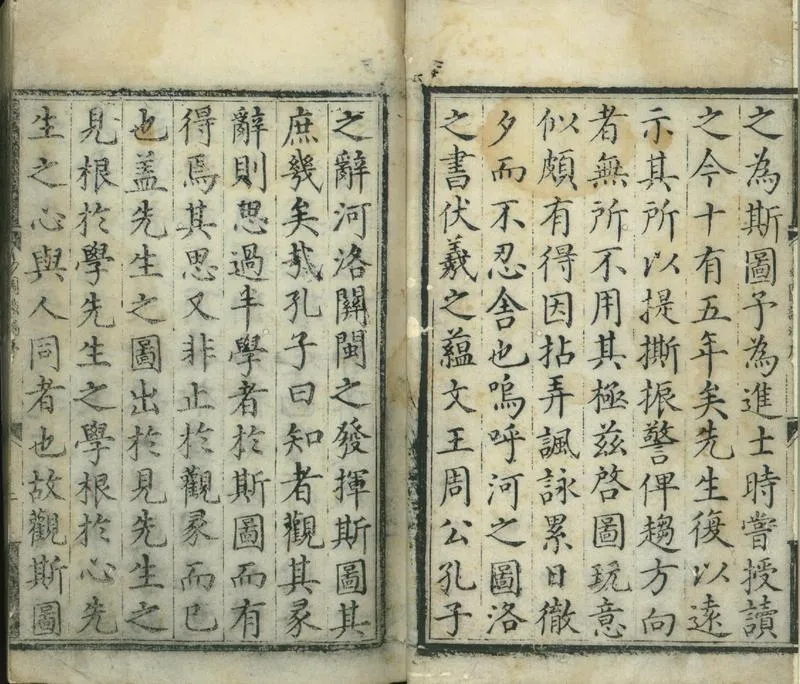 之為斯圖予為進士時嘗授讀
之今十有五年矣先生復以遠
示其所以提撕振警俾趨方向
者無所不用其極茲啓圖玩意
似頗有得因拈弄諷詠累日徹
夕而不忍舍也嗚呼河之圖洛
之書伏羲之蘊文王周公孔子
之辭河洛關閩之發揮斯圖其
庶幾矣哉孔子曰知者觀其彖
辭則思過半學者於斯圖而有
得焉其思又非止於觀彖而已
也盖先生之圖出於見先生之
見根於學先生之學根於心先
生之心與人同者也故觀斯圖